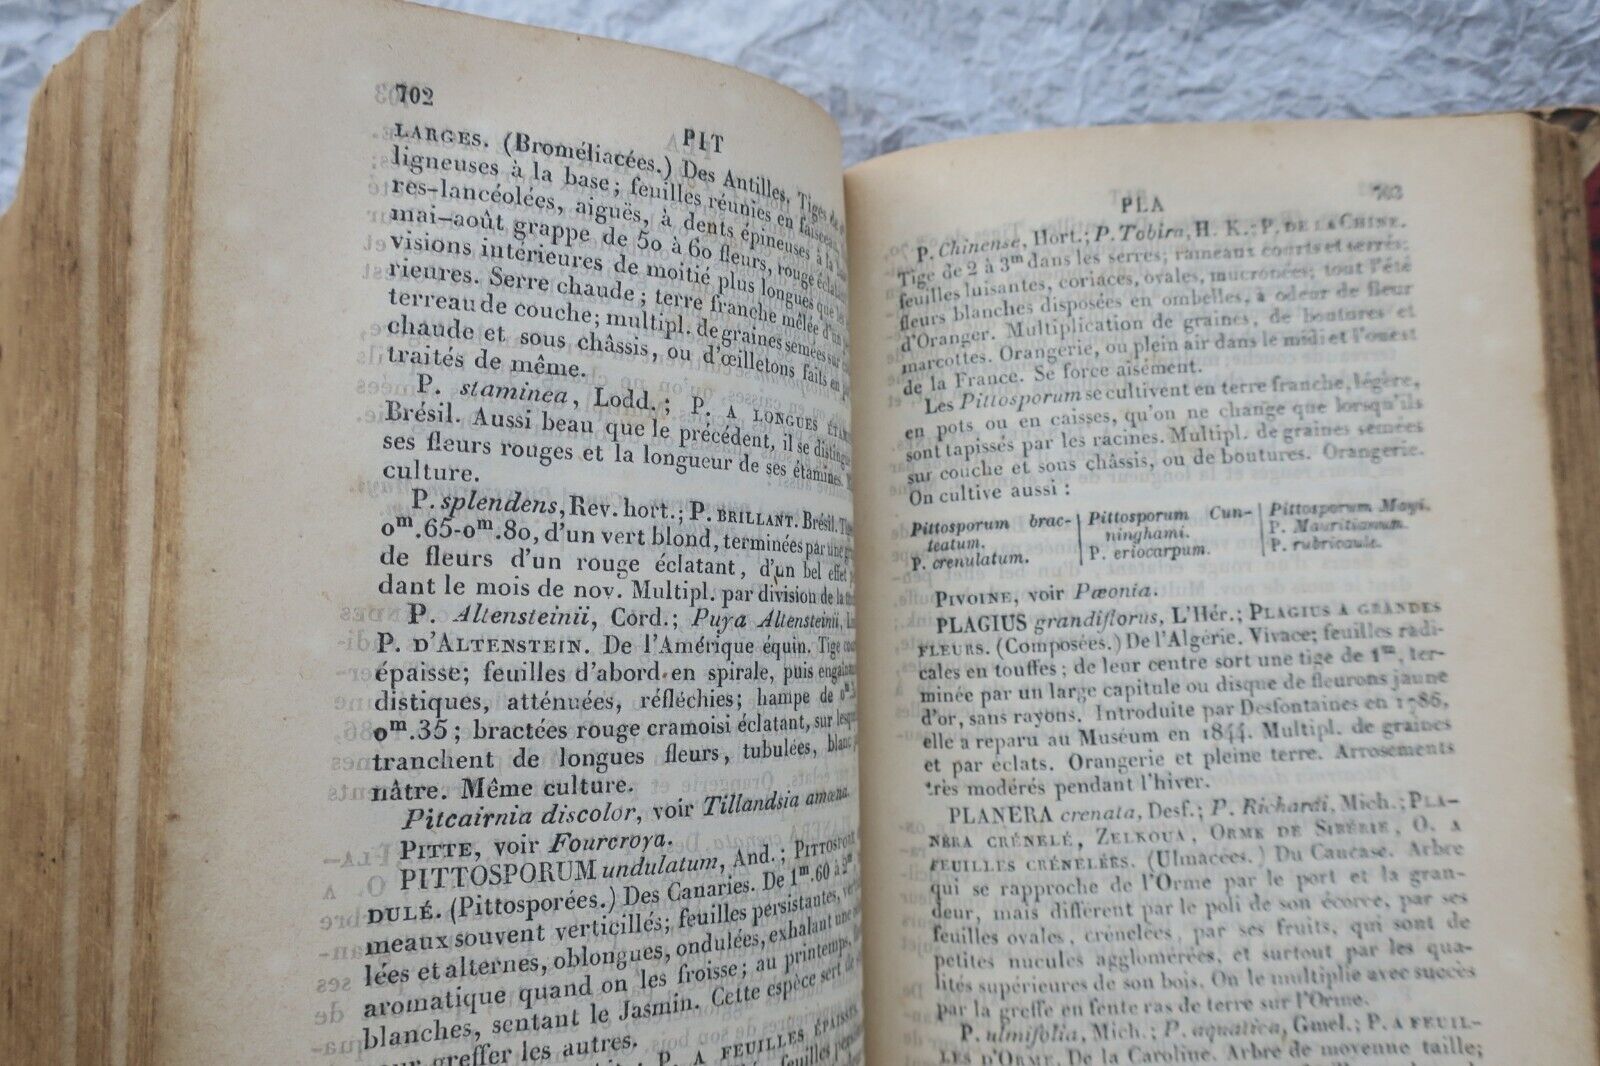 702
PIT
LARGES. (Broméliacées.) Des Antilles. Tiges de
ligneuses à la base; feuilles réunies en faisceau,
res-lancéolées, aiguës, à dents épineuses à la
mai-août grappe de 50 à 60 fleurs, rouge éclatant
visions intérieures de moitié plus longues que les
rieures. Serre chaude; terre franche mêlée d'un
terreau de couche; multipl. de graines semées sur
chaude et sous châssis, ou d'œilletons faits en
traités de même.
P. staminea, Lodd.; P. A LONGUES
Brésil. Aussi beau que le précédent, il se distingue
ses fleurs rouges et la longueur de ses étamines.
culture.
P. splendens, Rev. hort.; P. BRILLANT. Brésil.
0m.65-0m.80, d'un vert blond, terminées par une
de fleurs d'un rouge éclatant, d'un bel effet
dant le mois de nov. Multipl. par division de la
P. Altensteinii, Cord.; Puya Altensteinii,
P. D'ALTENSTEIN. De l'Amérique équin. Tige
épaisse; feuilles d'abord en spirale, puis
distiques, atténuées, réfléchies; hampe de
0m.35; bractées rouge cramoisi éclatant, sur
tranchent de longues fleurs, tubulées, blanc
nâtre. Même culture.
Pitcairnia discolor, voir Tillandsia amœna.
PITTE, voir Fourcroya.
PITTOSPORUM undulatum, And.;
DULÉ. (Pittosporées.) Des Canaries. De 1m.60 à 2m,
meaux souvent verticillés; feuilles persistantes,
lées et alternes, oblongues, ondulées, exhalant une
aromatique quand on les froisse; au printemps,
blanches, sentant le Jasmin. Cette espèce sert de
greffer les autres.
P. A FEUILLES ÉPAISSES.
PLA
703
P. Chinense, Hort.; P. Tobira, H. K.; P. DE LA CHINE.
Tige de 2 à 3m dans les serres; rameaux courts et serrés;
feuilles luisantes, coriaces, ovales, mucronées; tout l'été
fleurs blanches disposées en ombelles, à odeur de fleur
d'Oranger. Multiplication de graines, de boutures et
marcottes. Orangerie, ou plein air dans le midi et l'ouest
de la France. Se force aisément.
Les Pittosporum se cultivent en terre franche, légère,
en pots ou en caisses, qu'on ne change que lorsqu'ils
sont tapissés par les racines. Multipl. de graines semées
sur couche et sous châssis, ou de boutures. Orangerie.
On cultive aussi :
Pittosporum brac-
teatum.
P. crenulatum.
Pittosporum Cun-
ninghami.
P. eriocarpum.
Pittosporum Mayi.
P. Mauritianum.
P. rubricaule.
PIVOINE, voir Pæonia.
PLAGIUS grandiflorus, L'Hér.; PLAGIUS A GRANDES
FLEURS. (Composées.) De l'Algérie. Vivace; feuilles radi-
cales en touffes; de leur centre sort une tige de 1m, ter-
minée par un large capitule ou disque de fleurons jaune
d'or, sans rayons. Introduite par Desfontaines en 1786,
elle a reparu au Muséum en 1844. Multipl. de graines
et par éclats. Orangerie et pleine terre. Arrosements
très modérés pendant l'hiver.
PLANERA crenata, Desf.; P. Richardi, Mich.; PLA-
NÈRA CRÉNELÉ, ZELKOUA, ORME DE SIBÉRIE, O. A
FEUILLES CRÉNELÉES. (Ulmacées.) Du Caucase. Arbre
qui se rapproche de l'Orme par le port et la gran-
deur, mais différent par le poli de son écorce, par ses
feuilles ovales, crénelées, par ses fruits, qui sont de
petites nucules agglomérées, et surtout par les qua-
lités supérieures de son bois. On le multiplie avec succès
par la greffe en fente ras de terre sur l'Orme.
P. ulmifolia, Mich.; P. aquatica, Gmel.; P. A FEUIL-
LES D'ORME. De la Caroline. Arbre de moyenne taille;